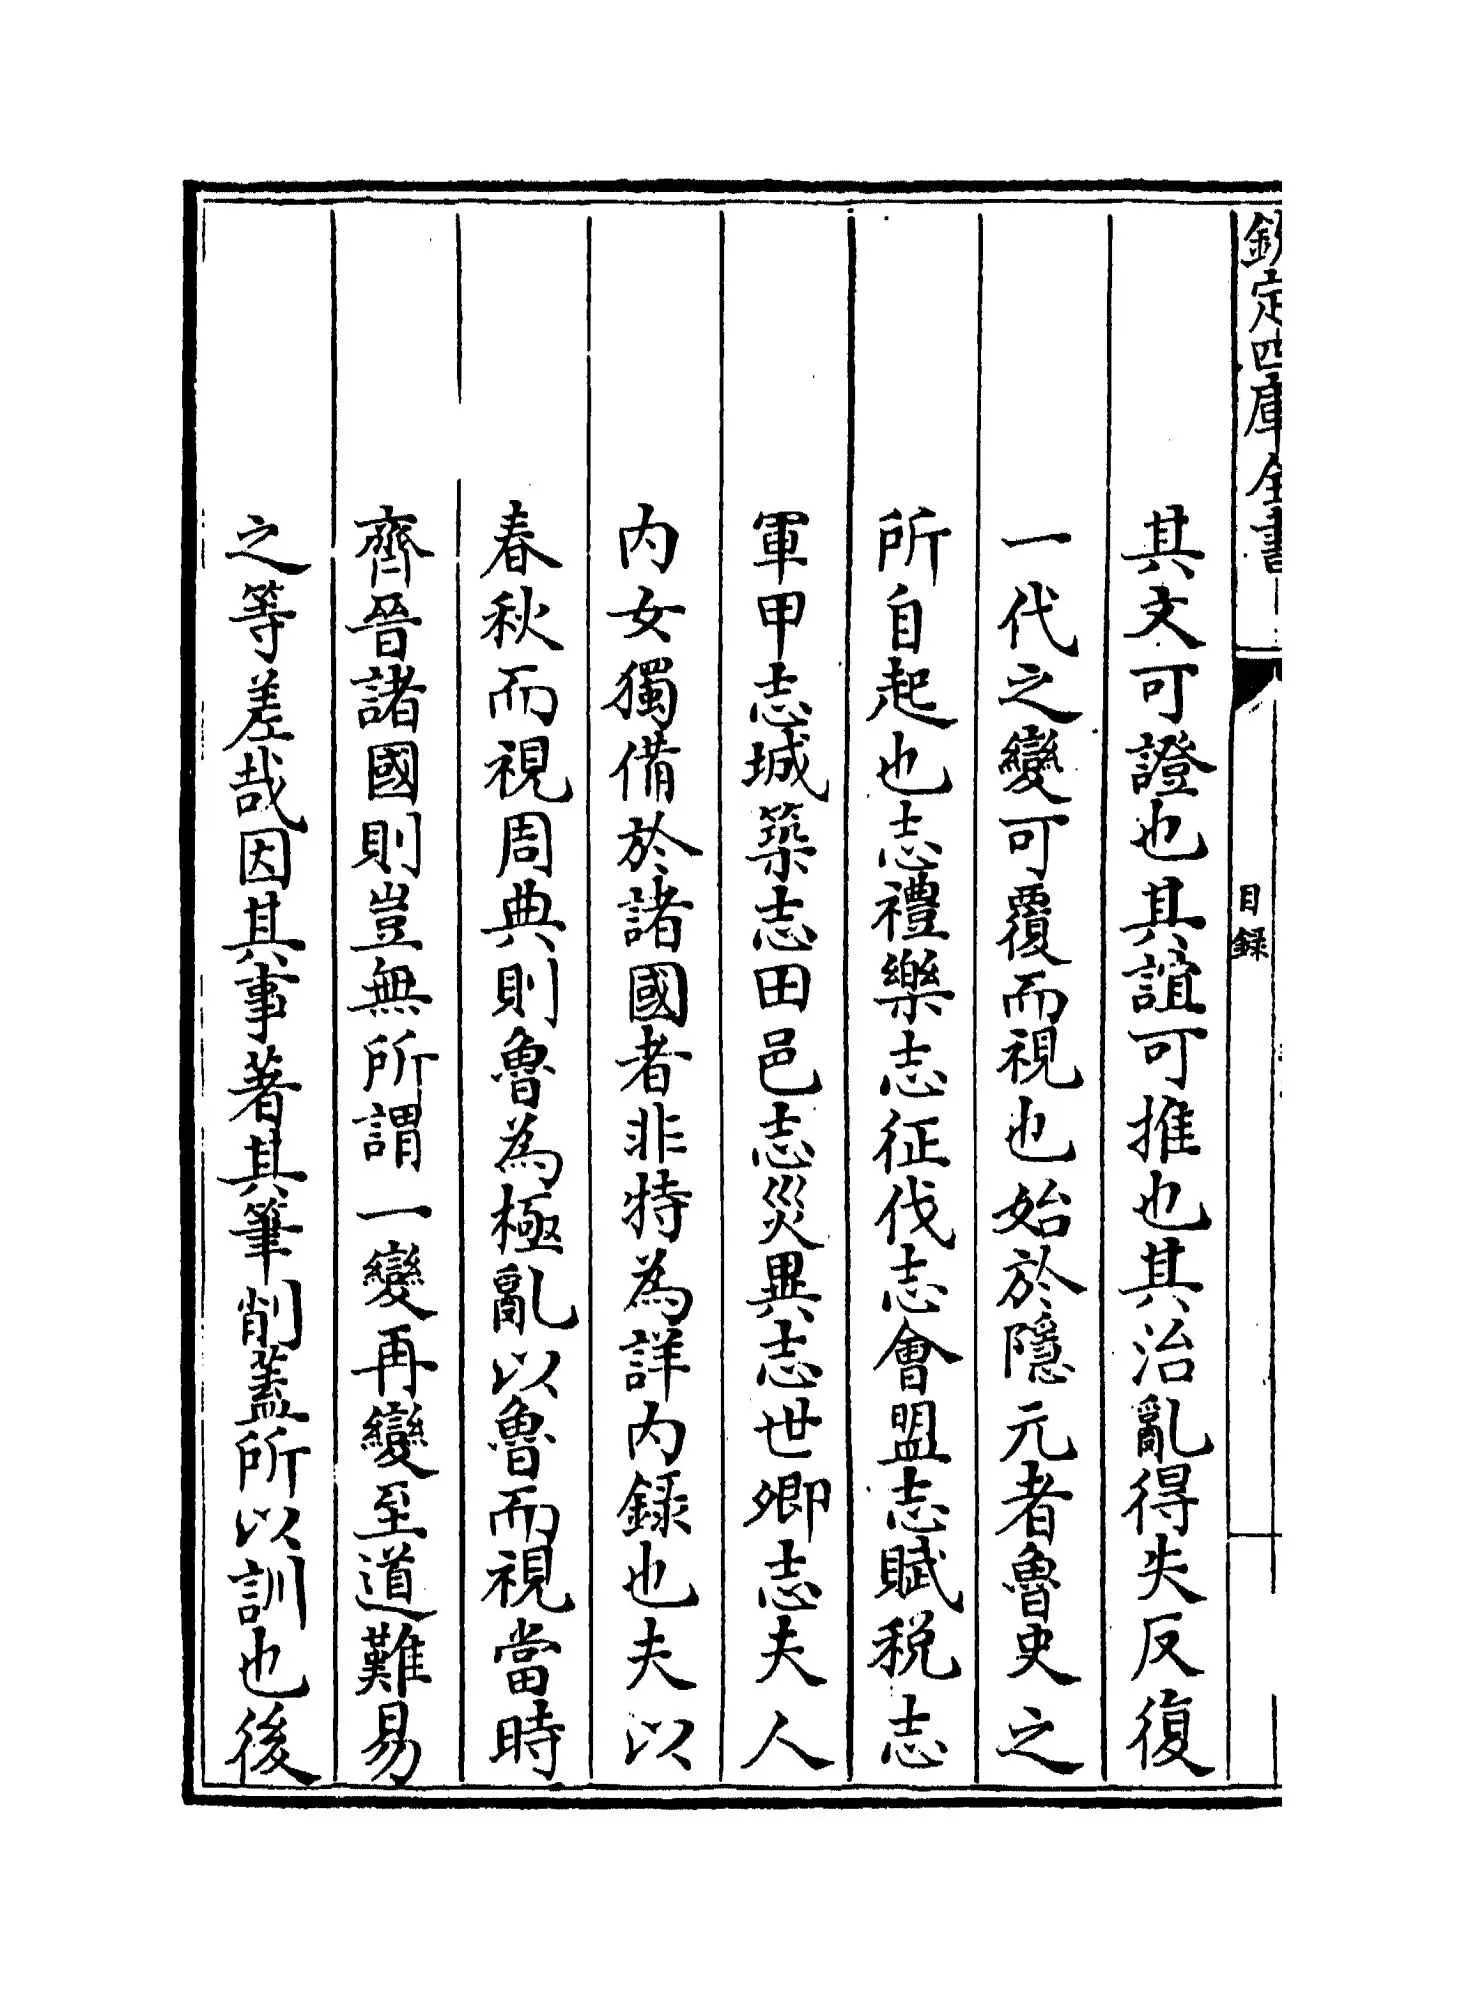 欽定四庫全書
目録
其文可證也其誼可推也其治亂得失反復
一代之變可覆而視也始於隱元者魯史之
所自起也志禮樂志征伐志會盟志賦税志
軍甲志城築志田邑志災異志世卿志夫人
内女獨備於諸國者非特為詳内録也夫以
春秋而視周典則魯為極亂以魯而視當時
齊晉諸國則豈無所謂一變再變至道難易
之等差哉因其事著其筆削蓋所以訓也後